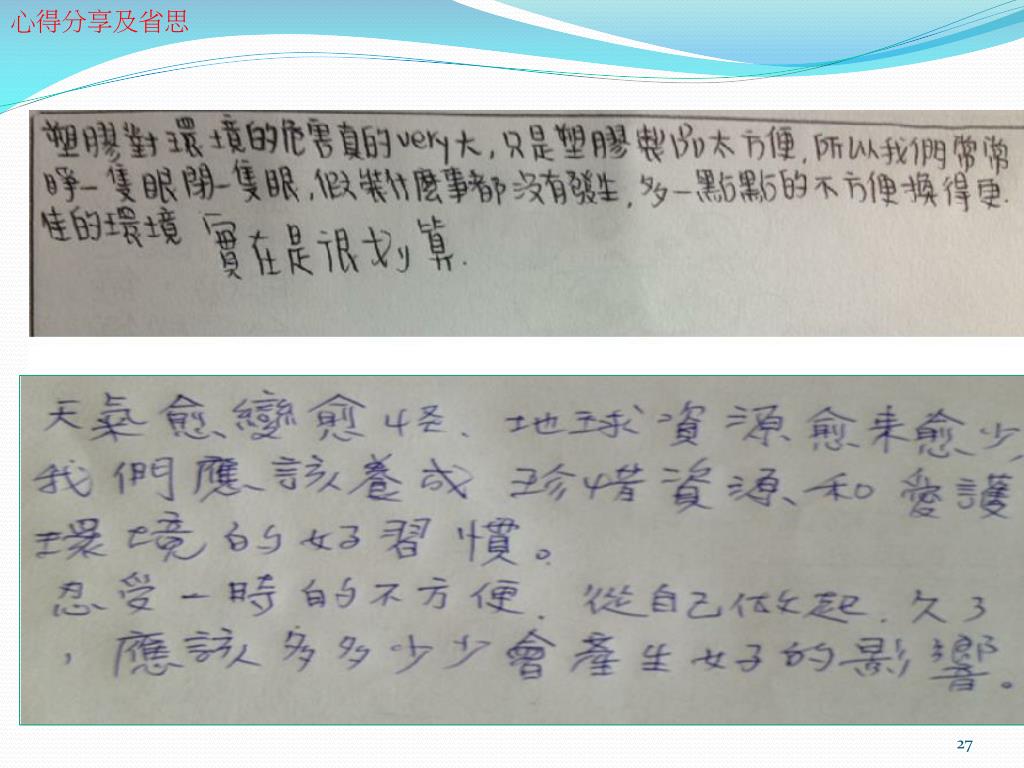 心得分享及省思
塑膠對環境的危害真的very大,只是塑膠製品太方便,所以我們常常
睜一隻眼閉一隻眼,假裝什麼事都沒有發生,多一點點的不方便換得更
佳的環境 實在是很划算.
天氣愈變愈怪、地球資源愈來愈少,
我們應該養成珍惜資源、和愛護
環境的好習慣。
忍受一時的不方便、從自己做起、久了
,應該多多少少會產生好的影響。
27